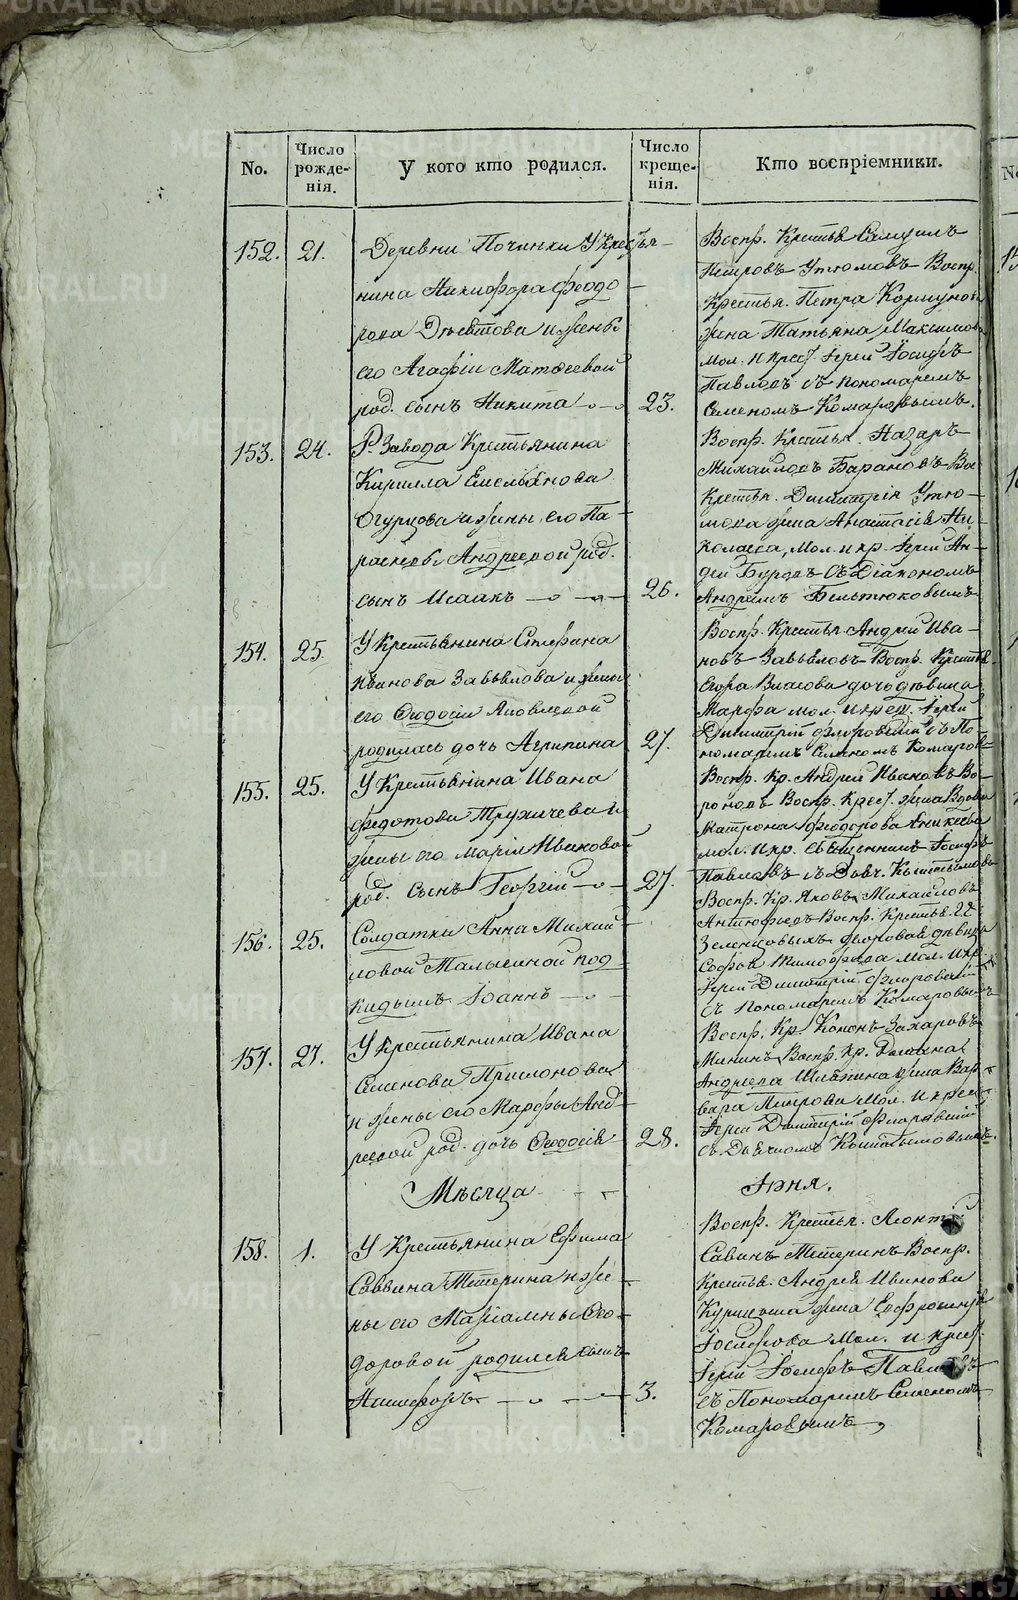 No.
Число рожде-нія.
У кого кто родился.
Число креще-нія.
Кто воспріемники.
152. 21.
Деревни Починки У Кресть-
янина Никифора Феодо-
рова Девятова и жены
его Агафіи Матвеевой
род. сынъ Никита
23.
Воспр. Крестья. Самуилъ
Петровъ Утюмовъ Воспр.
Крестья. Петра Коршунова
жена Татьяна Максимова
мол. и крест. Іерей Іосифъ
Павловъ съ пономаремъ
Семеномъ Комаровымъ.
153. 24.
Р. Завода Крестьянина
Кирилла Емельянова
Огурцова и жены его Па-
раскевы Андреевой род.
сынъ Исаакъ
26.
Воспр. Крестья. Назаръ
Михайловъ Барановъ Во
Крестья. Димитрія Утю-
мова жена Анастасія Ни-
колаева, Мол. и кр. Іерей Ан-
дрей Буровъ Съ Діакономъ
Андреемъ Бельтюковымъ
154. 25
У Крестьянина Стефана
Иванова Завьялова и жены
его Феодосіи Яковлевой
родилась дочь Агрипина
27.
Воспр. Крестья Андрей Ива-
новъ Завьяловъ Воспр. Крестья.
Егора Власова дочь девица
Марфа мол. и крест. Іерей
Димитрій Флоровскій съ По-
номаремъ Семеномъ Комаров
155. 25.
У Крестьянина Ивана
Федотова Тружичева и
жены его Маріи Ивановой
род. сынъ Георгій
27.
Воспр. Кр. Андрей Ивановъ Во-
роновъ Воспр. Крест. жена Вдова
Матрона Феодорова Аникеева
мол. и кр. Священникъ Іосифъ
Павловъ съ Дьяч.
156. 25.
Солдатки Анны Михай-
ловой Малыгиной под-
кидышъ Іоаннъ
Воспр. Кр. Яковъ Михайловъ
Воспр. Крестья.
девица
Софья Тимофеева мол. и кр.
Іерей Димитрій Флоровскій
съ пономаремъ Комаровымъ
157. 27.
У Крестьянина Ивана
Семенова
и жены его Марфы Анд-
реевой род. дочь Феодосія
28.
Воспр. Кр. Кононъ Захаровъ
Мининъ Воспр. Кр.
Андреева жена Вар-
вара Петрова Мол. и крест
Іерей Димитрій Флоровскій
съ Дьячкомъ
Месяца
Іюня.
158. 1.
У Крестьянина Ефима
Саввина Тетерина и же-
ны его Маріамны Фео-
доровой родился сынъ
Никифоръ
3.
Воспр. Крестья. Леонтій
Савинъ Тетеринъ Воспр.
Крестья. Андрея Иванова
жена Евфросинія
Іосифова Мол. и крест.
Іерей Іосифъ Павловъ
съ Пономаремъ Семеномъ
Комаровымъ
METRIKI.GASO-URAL.RU